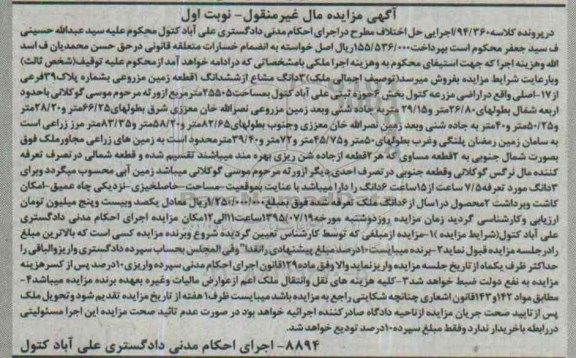 آگهی مزایده مال غیرمنقول- نوبت اول
در پرونده کلاسه۹۴/۳۶۰/اجرایی حل اختلاف مطرح در اجرای احکام مدنی دادگستری علی آباد کتول محکوم علیه سید عبدالله حسینی
ف سید جعفر محکوم است بپرداخت۱۵۵/۵۳۶/۰۰۰ریال اصل خواسته به انضمام خسارات متعلقه قانونی در حق حسن محمدیان ف اسد
الله وهزینه اجرا که جهت استیفای محکوم به وهزینه اجرا ملکی بامشخصاتی که درادامه خواهد آمد ازمحکوم علیه توقیف(شخص ثالث)
وبارعایت شرایط مزایده بفروش میرسد(توصیف اجمالی ملک)۳دانگ مشاع ازششدانگ ۱قطعه زمین مزروعی بشماره پلاک۳۹فرعی
از۱۷-اصلی واقع دراراضی مزرعه کتول بخش ۶حوزه ثبتی علی آباد کتول بمساحت۲۵۵۰۵مترمربع ازورثه مرحوم موسی گوکلانی باحدود
اربعه شمال بطولهای۲۶/۸۰متر و۲۹/۱۵ متربه جاده شنی وبعد زمین مزروعی نصرالله خان معززی شرق بطولهای۶۶/۲۵متر و۲۸/۲۰متر
و۵۰/۲۵متر و۴۰متر به جاده شنی وبعد زمین نصرالله خان معززی وجنوب بطولهای۸۲/۶۵متر و۵۸/۲۰متر و۸۳/۳۵متر مرز زراعی است
به سامان زمین رمضان پلنگی وغرب بطولهای۵۰متر و۴۵/۷۵متر و۷۲متر و۳۹/۴۰مترمحدود است به زمین های زراعی مجاور ملک فوق
بصورت شمال جنوبی به ۲قطعه مساوی که هر۲قطعه ازجاده شن ریزی بهره مند میباشند تقسیم شده و قطعه شمالی در تصرف تعرفه
کننده مال نرگس گوکلانی وقطعه جنوبی در تصرف احدی دیگر ازورثه مرحوم موسی گوکلانی میباشد زمین آبی محسوب میگردد وبرای
۳دانگ مورد تعرفه۷/۵ ساعت از۱۵ساعت ۶دانگ را دارا میباشد با عنایت به موقعیت-مساحت-حاصلخیزی-نزدیکی چاه عمیق-امکان
کاشت وبرداشت ۲محصول در۱سال از۶دانگ ملک تعرفه شده فوق بمبلغ۱/۲۵۰/۰۰۰/۰۰۰ریال معادل یکصد وبیست وپنج میلیون تومان
ارزیابی وکارشناسی گردید زمان مزایده روزدوشنبه مورخه۱۳۹۵/۰۷/۱۹ساعت۱۱الی۱۲مکان مزایده اجرای احکام مدنی دادگستری
علی آباد کتول(شرایط مزایده )۱-مزایده ازمبلغی که توسط کارشناس تعیین گردیده شروع وبرنده مزایده کسی است که بالاترین مبلغ
رادرجلسه مزایده قبول نماید۲-برنده میبایست۱۰درصد مبلغ پیشنهادی رانقدا"وفی المجلس بحساب سپرده دادگستری واریزوالباقی را
حداکثر ظرف یکماه از تاریخ جلسه مزایده واریزنماید والا وفق ماده۱۲۹قانون اجرای احکام مدنی سپرده واریزی۱۰درصد پس از کسرهزینه
مزایده به نفع دولت ضبط خواهد شد۳-کلیه هزینه های نقل وانتقال ملک اعم ازعوارض مالیات وغیره بعهده برنده مزایده میباشد۴-
مطابق مواد ۱۴۲و۱۴۳قانون اشعاری چنانچه شکایتی راجع به مزایده باشد میبایست ظرف۱هفته از تاریخ مزایده تقدیم شود وتحویل ملک
پس از تایید صحت جریان مزایده ازناحیه دادگاه صادرکننده اجرائیه خواهد بود در صورت عدم تائید صحت مزایده این اجرا مسئولیتی
دررابطه باخریدار ندارد وفقط مبلغ سپرده۱۰درصد تودیع خواهد شد.
۸۸۹۴- اجرای احکام مدنی دادگستری علی آباد کتول